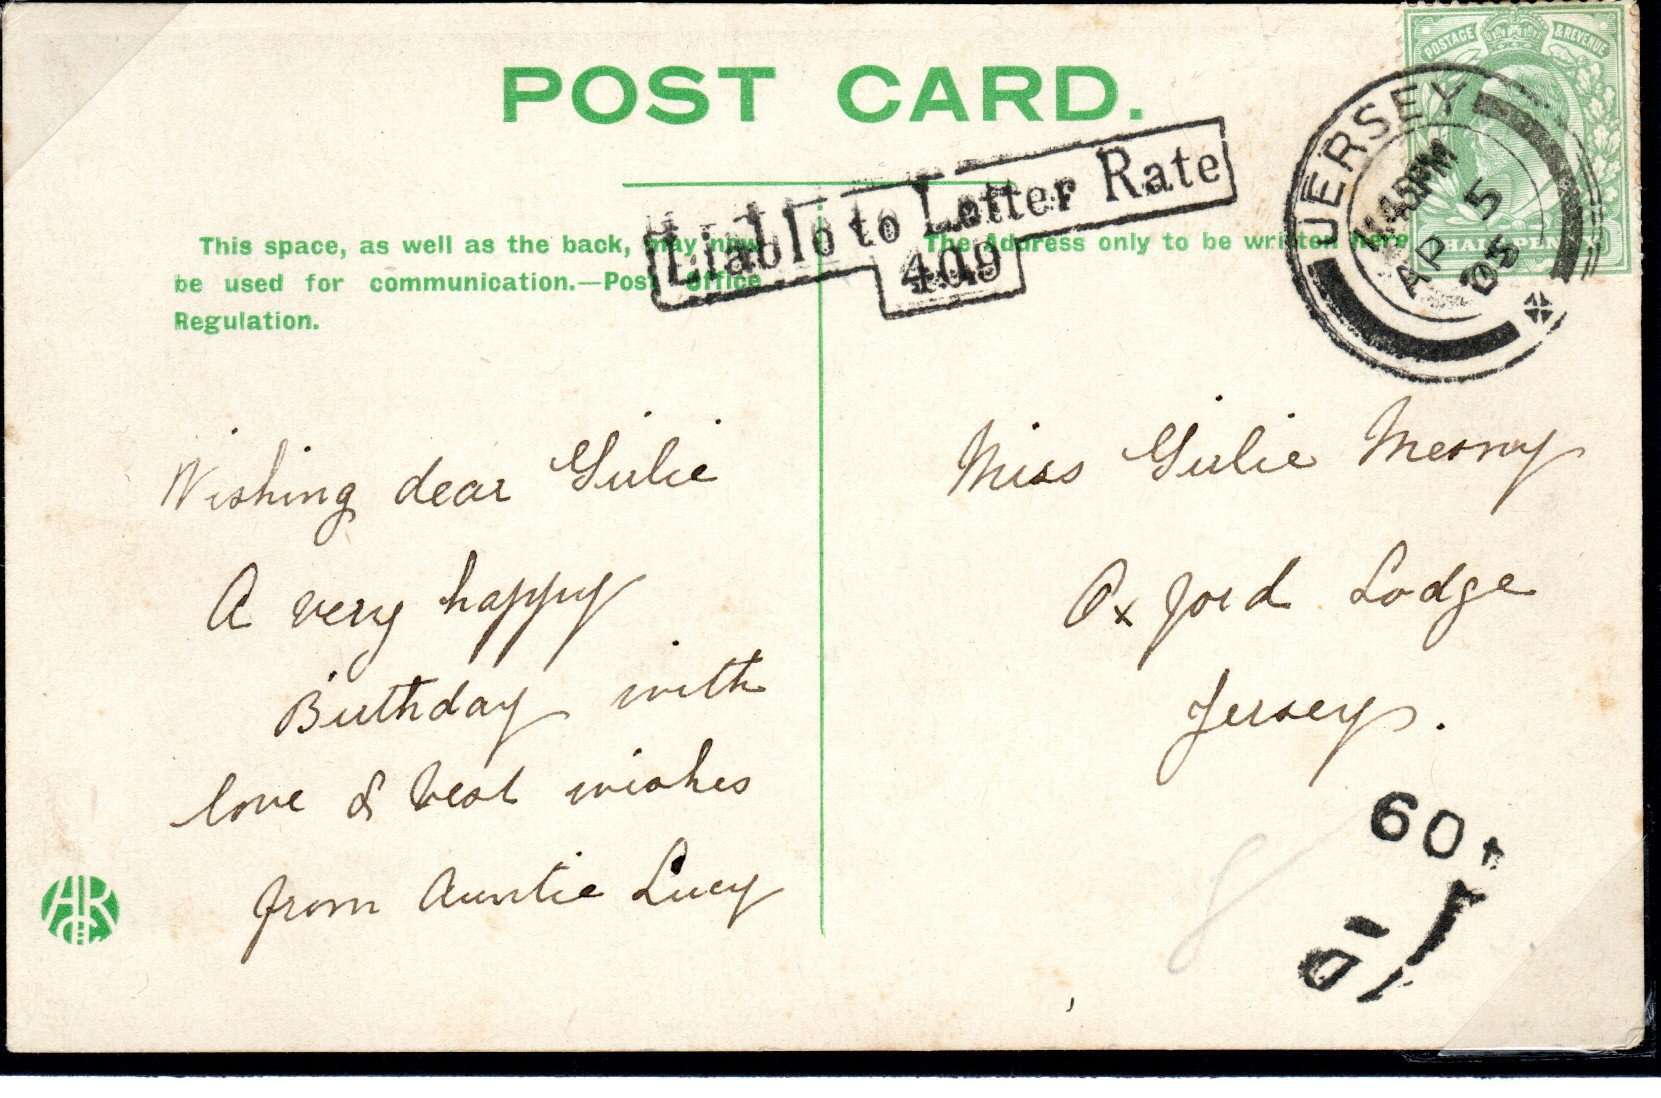 POST CARD.
POSTAGE & REVENUE
HALFPENNY
JERSEY
11.45PM
AP 5
05
Liable to Letter Rate
409
This space, as well as the back, may now
be used for communication.—Post Office
Regulation.
The Address only to be written here
Wishing dear Gulie
A very happy
Birthday with
love & best wishes
from Auntie Lucy
Miss Gulie Mesny
Oxford Lodge
Jersey.
409
1D